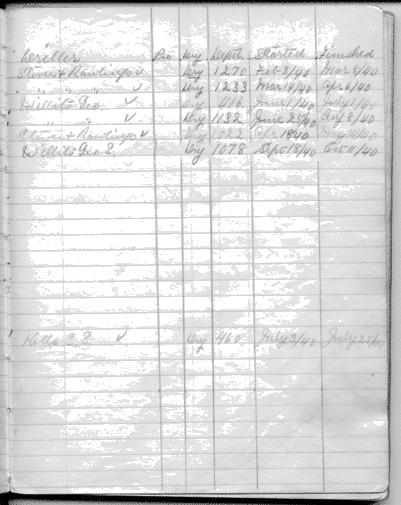 Driller Pro Dry Depth Started Finished
Stover & Rawlings ✓ Dry 1270 Feb 3/40 Mar 4/40
" " " ✓ Dry 1233 Mar 14/40 Apr 6/40
Willits Geo. ✓ Dry 416 June 1/40 July 1/40
" " ✓ Dry 1132 June 25/40 Aug 8/40
& Rawlings ✓ Dry 1022 Apr 18/40 May 11/40
Willits Geo E. Dry 1078 Sept 18/40 Oct 11/40
✓ Dry 460 July 3/40 July 25/40